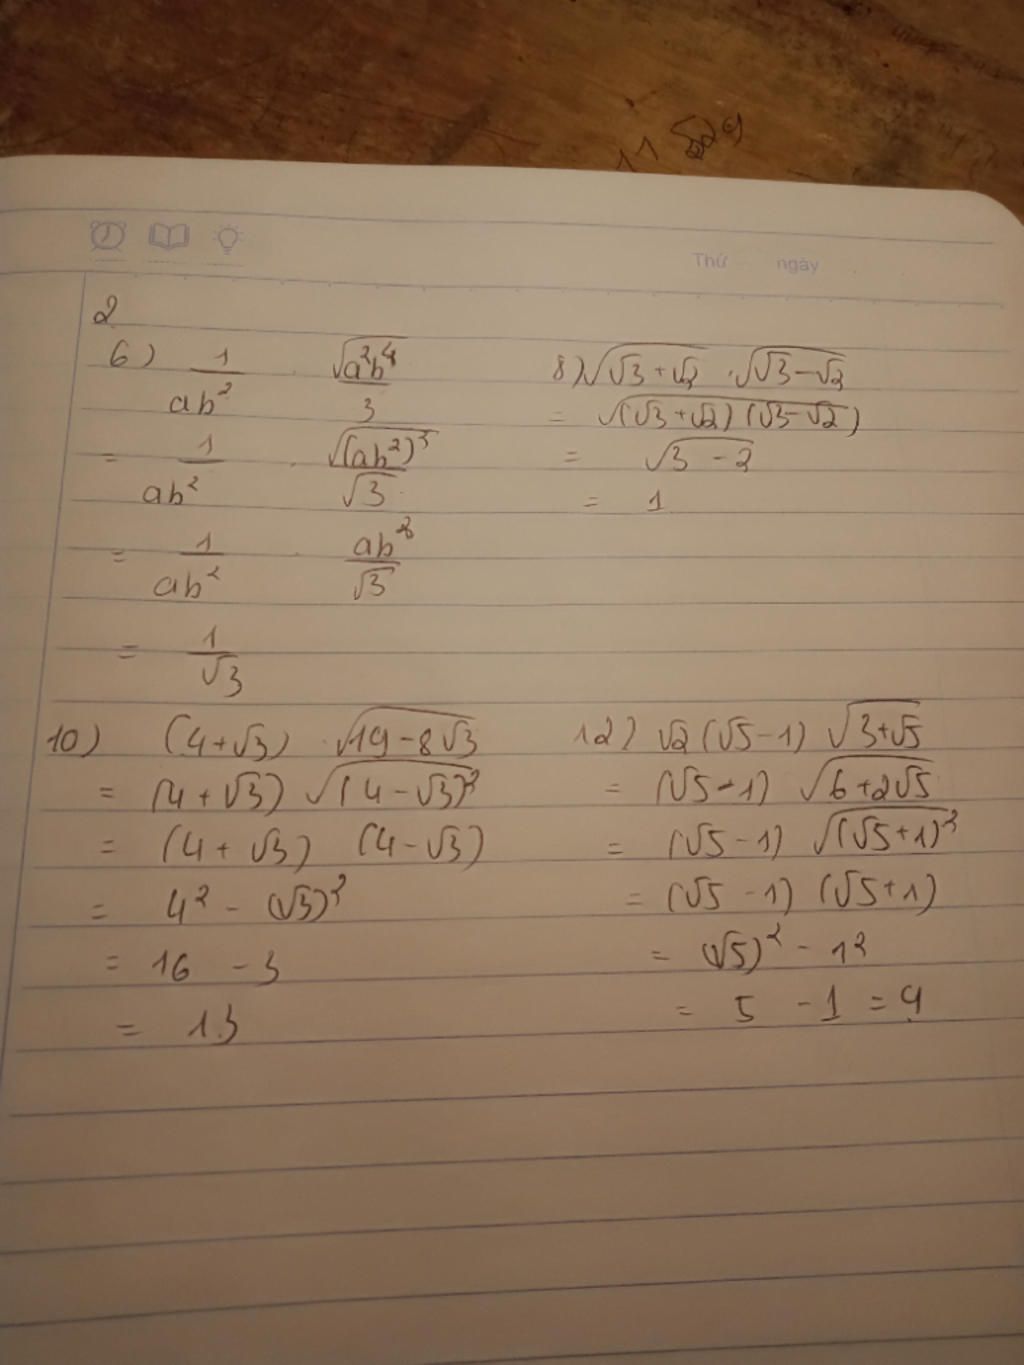 11 529
Thứ ngày
2
6) 1/ab² . √(a²b⁴)/3
= 1/ab² . √(ab²)²/√3
= 1/ab² . ab²/√3
= 1/√3
8) √(√3+√2) . √(√3-√2)
= √((√3+√2)(√3-√2))
= √(3-2)
= 1
10) (4+√3) . √(19-8√3)
= (4+√3) √(4-√3)²
= (4+√3) (4-√3)
= 4² - (√3)²
= 16 - 3
= 13
12) √2(√5-1) √(3+√5)
= (√5-1) √(6+2√5)
= (√5-1) √(√5+1)²
= (√5-1) (√5+1)
= (√5)² - 1²
= 5 - 1 = 4